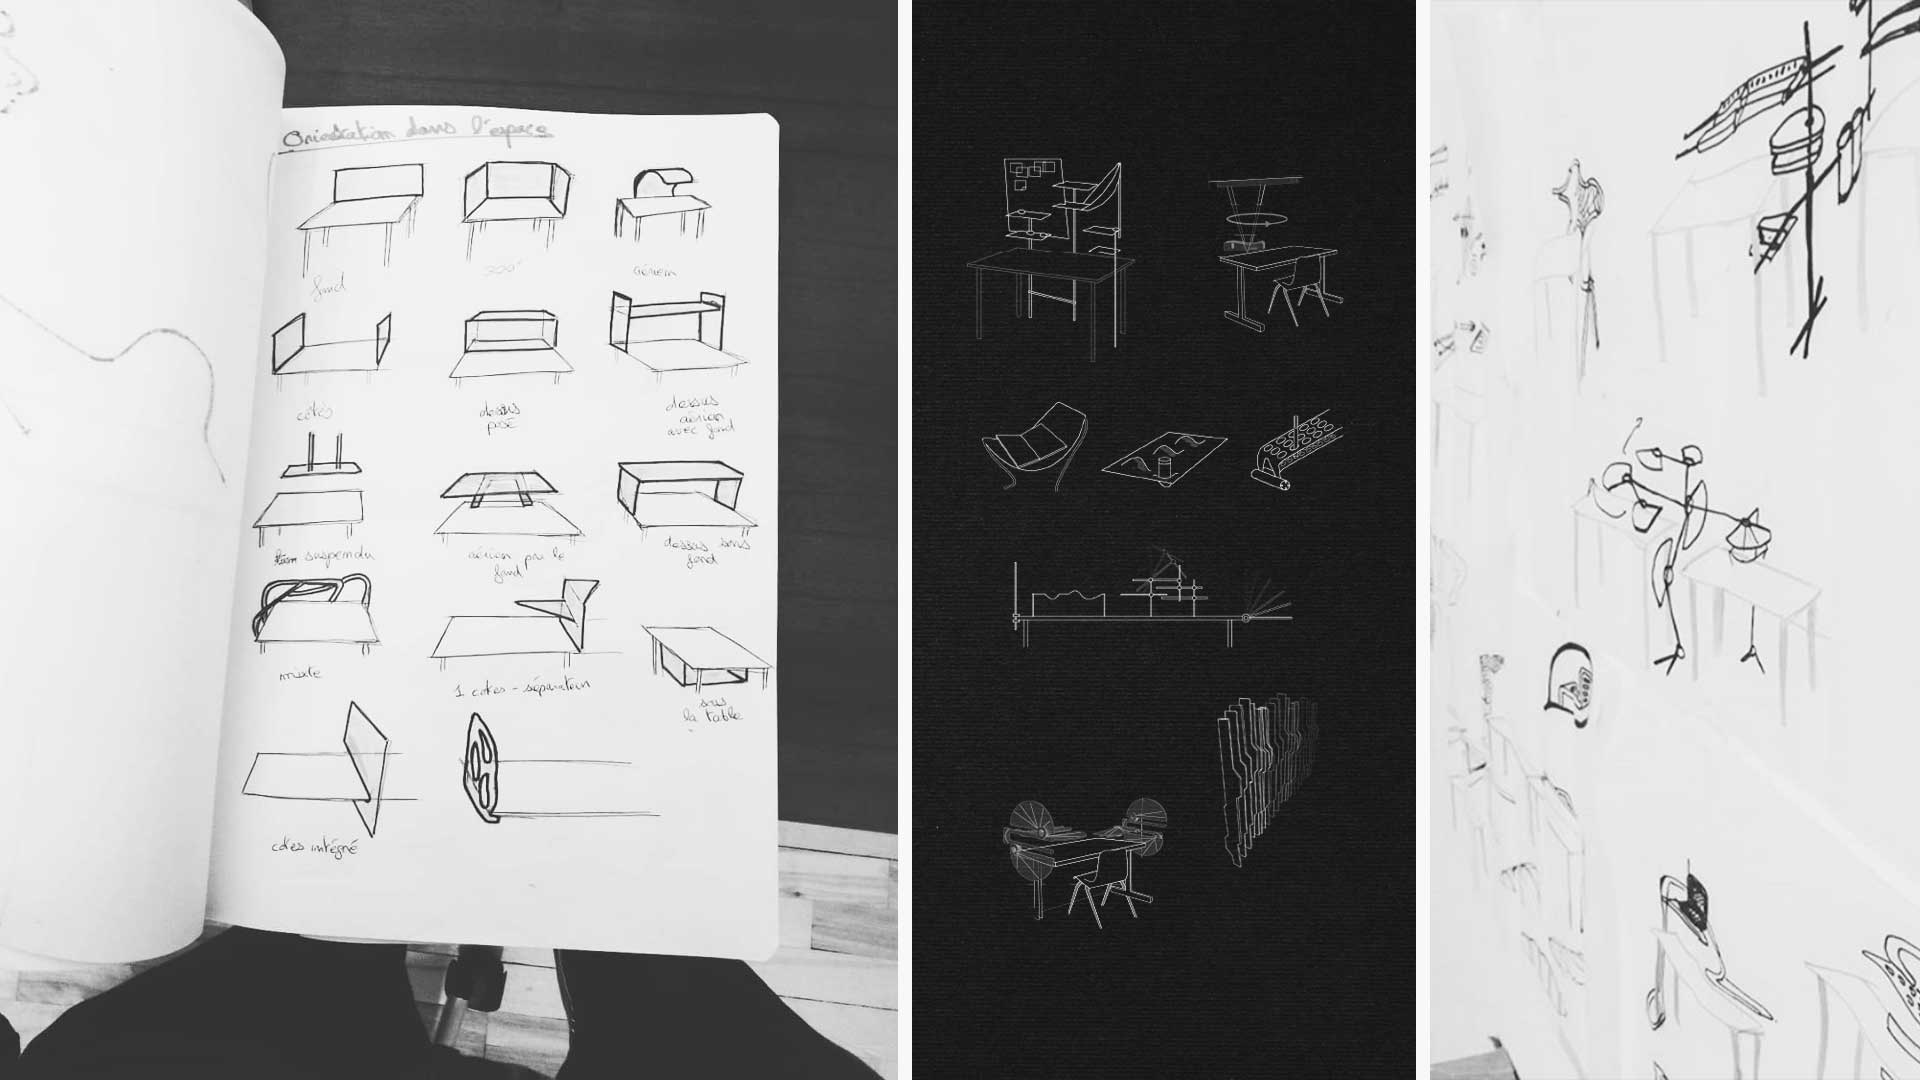 Orientation dans l'espace
fond
300°
aérien
côtés
dessus
posé
dessus
aérien
avec fond
suspendu
aérien par le
fond
dessus sans
fond
mixte
1 côtés - séparateur
sous
la table
côtés intégré